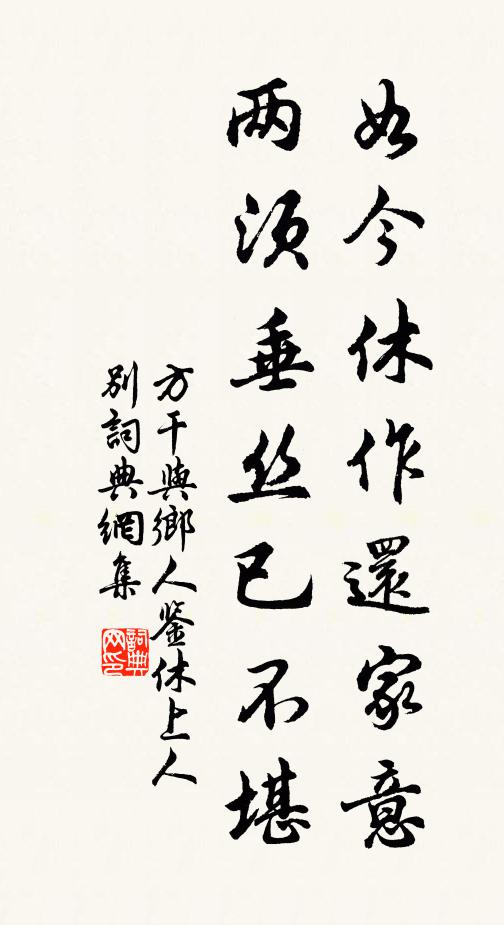 如今休作還家意
两须垂丝已不堪
方干與鄉人鉴休上人
别詞典網集
詞典网印